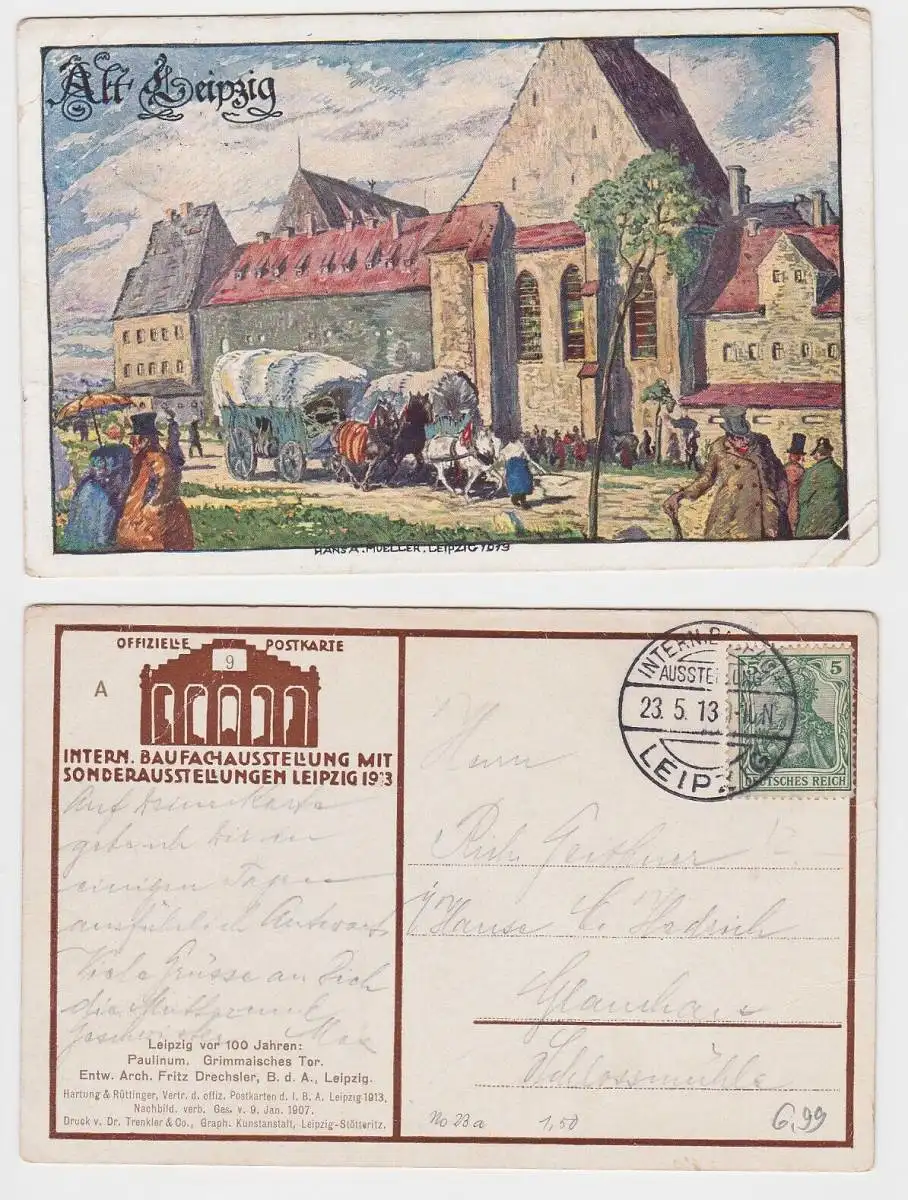 Alt Leipzig
HANS A. MUELLER. LEIPZIG 1913
OFFIZIELLE POSTKARTE
9
A
INTERN. BAUFACHAUSSTELLUNG MIT
SONDERAUSSTELLUNGEN LEIPZIG 1913
INTERN. BAUFACH
AUSSTELLUNG
23. 5. 13
N.
LEIPZIG
5 5
DEUTSCHES REICH
Herrn
Rich.
i/Hause C. Hedrich
Glauchau
Schlossmühle
Auf Deine Karte
gebe ich Dir in
einigen Tagen
ausführlich Antwort
Viele Grüsse an Dich
die Mutter und
Geschwister Max
Leipzig vor 100 Jahren:
Paulinum. Grimmaisches Tor.
Entw. Arch. Fritz Drechsler, B. d. A., Leipzig.
Hartung & Rüttinger, Vertr. d. offiz. Postkarten d. I. B. A. Leipzig 1913.
Nachbild. verb. Ges. v. 9. Jan. 1907.
Druck v. Dr. Trenkler & Co., Graph. Kunstanstalt, Leipzig-Stötteritz.
No 23a 1,50 6,99